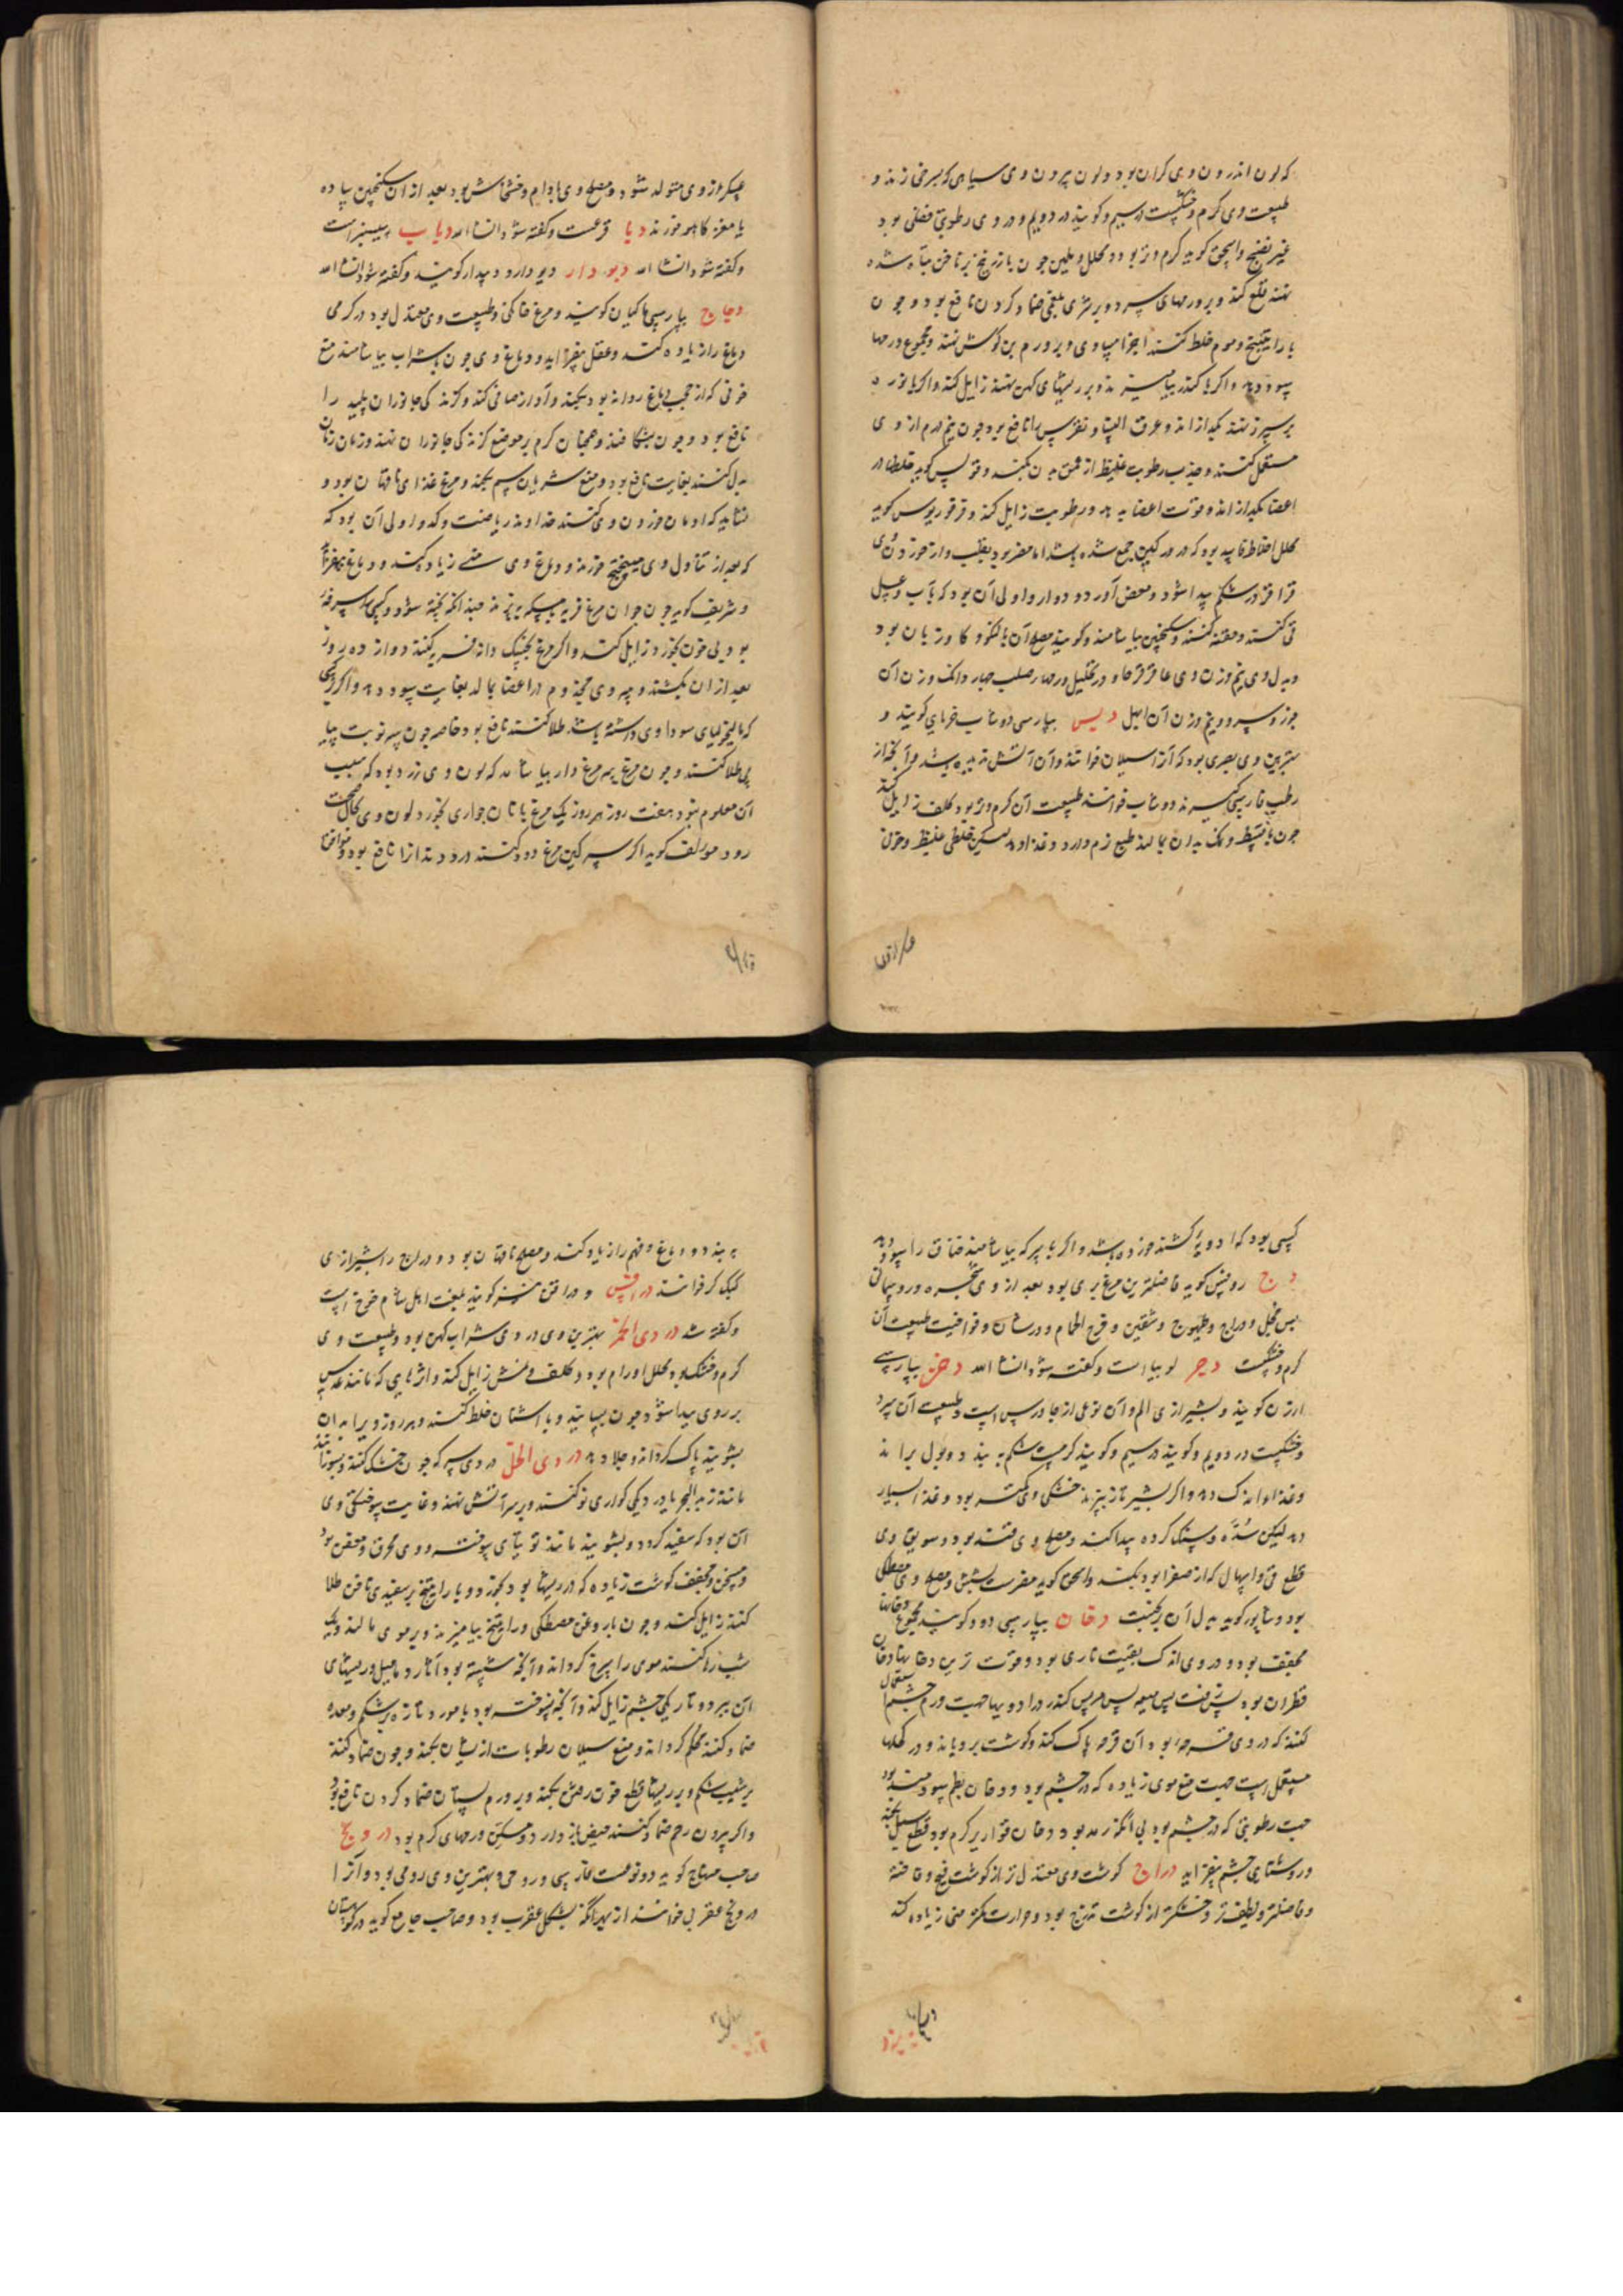 که لون اندرون وی کران بود و لون بیرون وی سیاهی که بسرخی زند و
طبیعت وی کرم و خشکست در سیم و کویند در دویم و در وی رطوبتی فضلی بود
غیر نضیج و اسحق کوید کرم و تر بود و محلل و ملین چون با زرنیخ بر ناخن تباه شده
نهند قلع کند و بر ورمهای سرد و بر شری بلغمی ضماد کردن نافع بود و چون
با راتینج و موم خلط کنند اجزا مساوی و بر ورم بن کوش نهند و مجموع ورمها
سود دهد و اکر با کندر بیامیزند و بر ریشهای کهن نهند زایل کند و اکر با نوره
بر سپرز نهند بکدازاند و عرق النسا و نقرس را نافع بود چون نیم درم از وی
مستعمل کنند و جذب رطوبت غلیظ از عمق بدن بکند و فولس کوید خلطها در
اعضا بکدازاند و قوت اعضا بدهد و رطوبت زایل کند و قرقوریوس کوید
محلل اخلاط فاسد بود که در ورکین جمع شده باشد اما مضر بود بقلب و از خوردن وی
قراقر در شکم پیدا شود و مغص آورد و دوار و اولی آن بود که بآب و عسل
قی کنند و حقنه کنند و سکنجبین بیاشامند و کویند مصلح آن بالنکو و کاوزبان بود
و بدل وی نیم وزن وی عاقرقرحا و در تحلیل ورمها صلب چهار دانک وزن آن
جوز سرو و نیم وزن آن ابهل دبس بپارسی دوشاب خرمای کویند و
بهترین وی بصری بود که آنرا سیلان خوانند و آن آتش ندیده باشد و آنچه از
رطب فارسی کیرند دوشاب خوانند طبیعت آن کرم و تر بود کلف زایل کند
چون با قسط و نمک بدان بمالند طبع نرم دارد و غذا دهد لیکن خلطی غلیظ و خون
عکر از وی متولد شود و مصلح وی بادام و خشخاش بود بعد از ان سکنجبین ساده
یا مغز کاهو خورند دبا قرعست و کفته شود انشا الله دباب سیسنبر است
و کفته شود انشا الله دیودار دیودارو دیدار کویند و کفته شود انشا الله
دجاج بپارسی ماکیان کویند و مرغ خانکی و طبیعت وی معتدل بود در کرمی
دماغ را زیاده کند و عقل بیفزاید و دماغ وی چون با شراب بیاشامند منع
خونی که از حجب دماغ روانه بود بکند و آواز صافی کند و کزندکی جانوران پلید را
نافع بود و چون بشکافند و همچنان کرم بر موضع کزندکی جانوران نهند و زمان زمان
بدل کنند بغایت نافع بود و منع سریان سم بکند و مرغ غذای ناقهان بود و
نشاید که ادمان خوردن وی کنند خداوند ریاضت و کد و اولی آن بود که
که بعد از تناول وی میبختج خورند و دماغ وی منی زیاده کند و دماغ بیفزاید
و شریف کوید چون جوان مرغ فربه بسکه بپزند چندانکه پخته شود و کسی را سرفه
بود بی خون بخورد زایل کند و اکر مرغ بخسک دانه فربه کنند دوازده روز
بعد از ان بکشند و پیه وی مجذوم در اعضا بمالد بغایت سود دهد و اکر کسی
که مالیخولیای سوداوی داشته باشد طلا کنند نافع بود خاصه چون سه نوبت پیا
پی طلا کنند و چون مرغ پیه مرغ دار بیاشامد که لون وی زرد بود که سبب
آن معلوم نبود هفت روز هر روز یک مرغ با نان حواری بخورد لون وی بحال صحت
رود مولف کوید اکر سرکین مرغ دود کنند درد دندانرا نافع بود و موافق
کسی بود که ادویه کشنده خورده باشد و اکر با سرکه بیاشامند خناق را سود دهد
دج روفس کوید فاضلترین مرغ بری بود بعد از وی شحره و رو سمانی
پس حجل و دراج و طیهوج و شفنین و فرخ الحمام و ورشان و فواخت طبیعت آن
کرم و خشکست دجر لوبیا است و کفته شود انشا الله دخن بپارسی
ارزن کویند و بشیرازی الم و آن نوعی از جاورس است و طبیعت آن سرد
و خشکست در دویم و کویند در سیم و کویند کرمست شکم ببندد و بول براند
و غذا اندک دهد و اکر بشیر تازه بپزند خشکی وی کمتر بود و غذا بسیار
دهد لیکن سده و سنک کرده پیدا کند و مصلح وی قند بود و سویق وی
قطع قی و اسهال که از صفرا بود بکند و اسحق کوید مضرست بشش و مصلح وی مصطکی
بود و شاپور کوید بدل آن برنجست دخان بپارسی دود کویند مجموع دخانها
مجفف بود و در وی اندک بقیت ناری بود و قوت ترین دخانها دخان
قطران بود پس زفت پس میعه پس مر پس کندر در ادویها جهت ورم چشم استعمال
کنند که در وی قرحه بود آن قرحه پاک کند و کوشت برویاند و در کحلها
مستعمل است جهت منع موی زیاده که در چشم بود و دخان بطم سودمند بود
جهت رطوبتی که در چشم بود بی آنکه رمد بود و دخان قواریر کرم بود قطع سیل بکند
و روشنایی چشم بیفزاید دراج کوشت وی معتدل تر از کوشت قبج و فاخته
و فاضلتر و لطیف تر و خشکتر از کوشت تدرج بود و حرارت کمتر منی زیاده کند
ببندد و دماغ و فهم را زیاد کند و مصلح ناقهان بود و دراج را بشیرازی
کبک کر خوانند دراقیس و دراقن نیز کویند بلغت اهل شام خوخ است
و کفته شد دردی الخمر بهترین وی دردی شراب کهن بود و طبیعت وی
کرم و خشک بود محلل اورام بود و کلف و نمش زایل کند و اثرهایی که مانند عدس
بر روی پیدا شود چون بسایند و با اشنان خلط کنند و هر روز ویرا بدان
بشویند پاک کرداند و جلا دهد دردی الخل دردی سرکه چون خشک کنند و بسوزانند
مانند زبدالبحر باید در دیکی کواری نو کنند و بر سر آتش نهند و غایت سوختکی وی
آن بود که سفید کردد و بشویند مانند توتیای سوخته و وی محرق و معفن بود
و مسخن و مجفف کوشت زیاده که در ریشها بود بخورد و با راتینج بر سفیدی ناخن طلا
کنند زایل کند و چون با روغن مصطکی و راتینج بیامیزند و بر موی مالند و یک
شب رها کنند موی را سرخ کرداند و آنچه شسته بود آثار دمامیل و ریشهای
آن ببرد و تاریکی چشم زایل کند و آنچه نسوخته بود با مورد تازه بر شکم و معده
ضماد کنند محکم کرداند و منع سیلان رطوبات از ایشان بکند و چون ضماد کنند
بر شیب شکم و بر ریشها قطع خون رفتن بکند و بر ورم پستان ضماد کردن نافع بود
و اکر بیرون رحم ضماد کنند حیض باز دارد و مسکن ورمهای کرم بود درونج
صاحب منهاج کوید دو نوعست فارسی و رومی و بهترین وی رومی بود و آنرا
درونج عقربی خوانند از بهر آنکه بشکل عقرب بود و صاحب جامع کوید در کوهستان